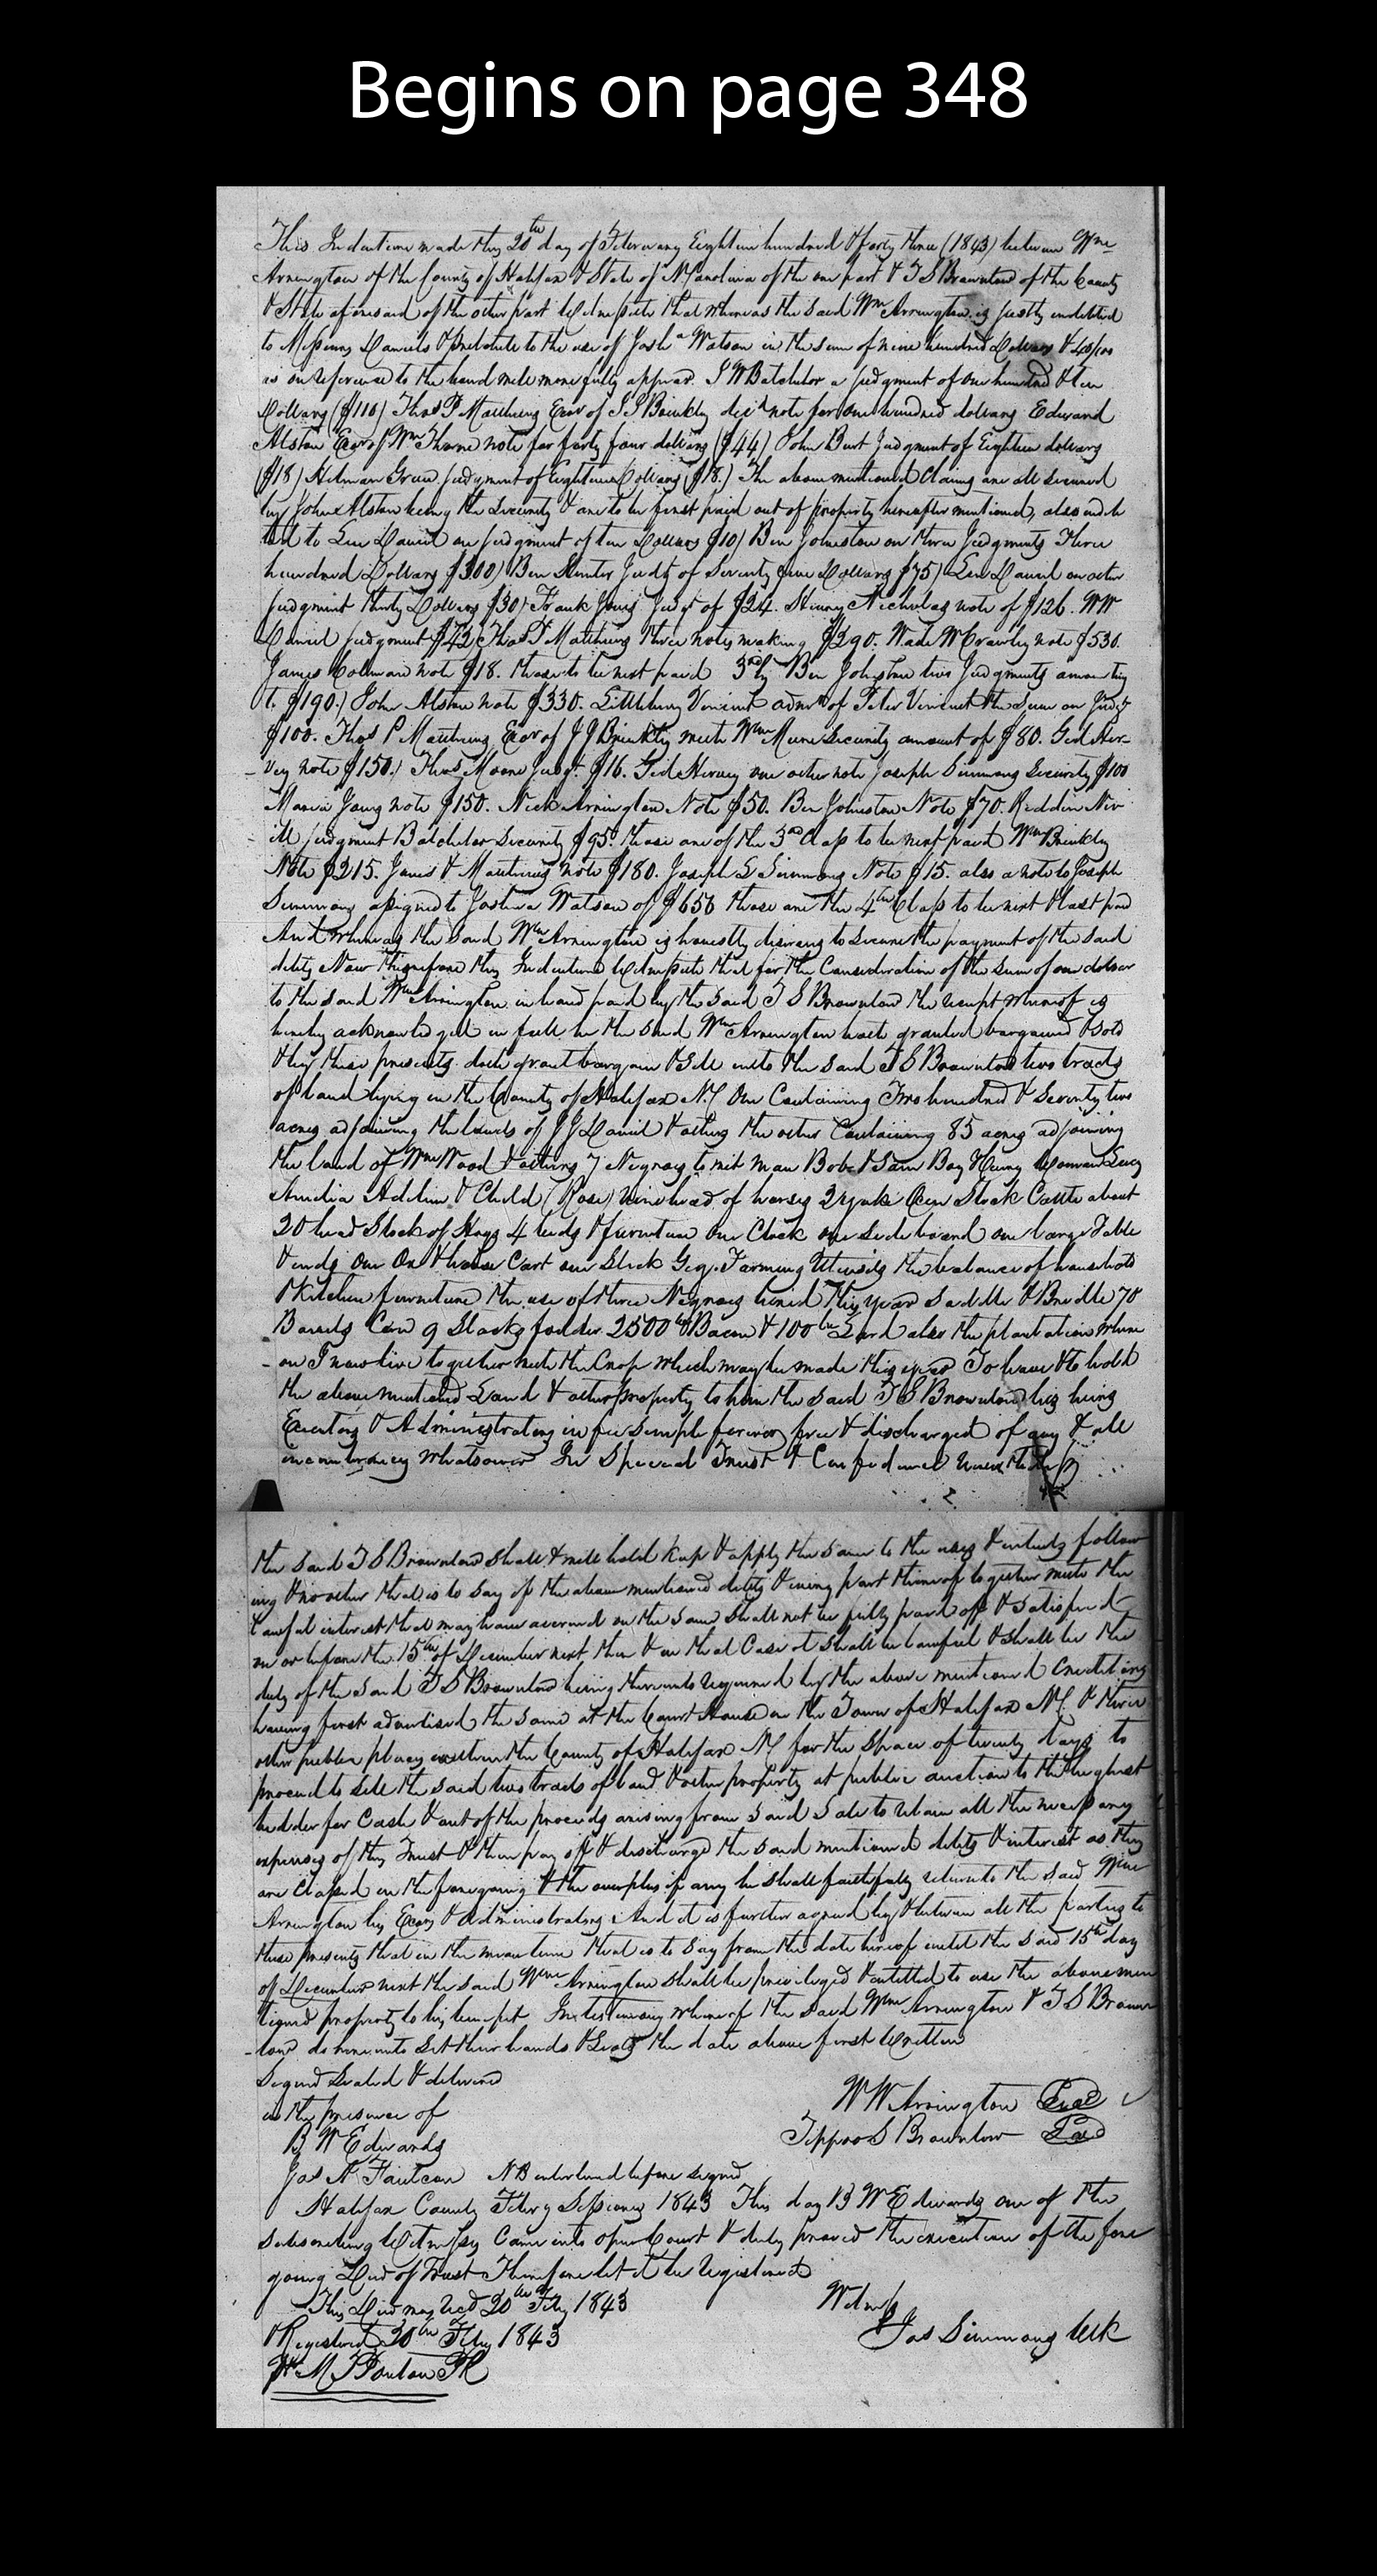 Begins on page 348
This Indenture made this 20th day of February Eighteen hundred & forty three (1843) between Wm
Arrington of the County of Halifax & State of N Carolina of the one part & T S Brownlow of the County
& State aforesaid of the other part Witnesseth that whereas the said Wm Arrington is justly indebted
to Messrs Daniels to the use of Josha Watson in the sum of nine hundred Dollars & 40/100
as on reference to the bond will more fully appear. J W Batchelor a judgment of one hundred & ten
Dollars ($110) Thos P Matthews Exor of J J Brinkly decd note for one hundred dollars Edward
Alston Exor of Wm Thorne note for forty four dollars ($44) John Burt Judgment of Eighteen dollars
($18) Hilman Green judgment of Eighteen Dollars ($18.) The above mentioned Claims are all secured
by John Alston being the Security & are to be first paid out of property hereafter mentioned, also indeb
ted to Lew Daniel on judgment of ten Dollars $10) Ben Johnston on three Judgments Three
hundred Dollars $300) Ben Hunter Judgt of Seventy five Dollars $75) Lew Daniel on other
judgment thirty Dollars $30) Frank Jones Judgt of $24. Henry Nicholas note of $126. W W
Daniel judgment $42) Thos P Matthews three notes making $290. Wade W Crawley note $530.
James note $18. these to be next paid 3rdly Ben Johnston two Judgments amounting
to $190.) John Alston note $330. Littlebury Vincent admr of Peter Vincent the Sum on Judgt
$100. Thos P Matthews Exor of J J Brinkly with Wm Security amount of $80. Gid Her-
vey note $150.) Thos Moore Judgt. $16. Gid Hervey one other note Joseph Simmons Security $100
Maria Jones note $150. Nick Arrington Note $50. Ben Johnston Note $70. Reddin Niv
ill judgment Batchelor Security $95. these are of the 3rd Class to be next paid Wm Brinkley
Note $215. James & Matthews note $180. Joseph L Simmons Note $15. also a note to Joseph
Simmons assigned to Joshua Watson of $656 these are the 4th Class to be next & last paid
And whereas the said Wm Arrington is honestly desirous to secure the payment of the said
debts Now therefore this Indenture Witnesseth that for the Consideration of the sum of one dollar
to the said Wm Arrington in hand paid by the said T S Brownlow the receipt whereof is
hereby acknowledged in full he the said Wm Arrington hath granted bargained & sold
& by these presents doth grant bargain & sell unto the said T S Brownlow two tracts
of land lying in the County of Halifax N.C One Containing Two hundred & Seventy two
acres adjoining the lands of J J Daniel & others the other Containing 85 acres adjoining
the land of Wm Wood & others 7 Negroes to wit man Bob & Sam Boy Henry Woman Lucy
Amelia Adeline & Child (Rose) nine head of horses 2 yoke Oxen Stock Cattle about
20 head Stock of Hogs 4 beds & furniture One Clock one Sideboard one large Table
& ends One Ox & horse Cart one Gig. Farming Utensils the balance of household
& Kitchen furniture the use of three Negroes hired this year Saddle & Bridle 70
Barrels Corn 9 Stacks fodder 2500 lb Bacon & 100 lbs Lard also the plantation where
on I now live together with the Crop which may be made this year To have & to hold
the above mentioned Land & other property to him the said T S Brownlow his heirs
Executors & Administrators in fee simple forever free & discharged of any & all
incumbrances whatsoever In Special Trust & Confidence
the said T S Brownlow shall & will hold keep & apply the same to the uses & intents follow
ing & no other that is to say if the above mentioned debts & every part thereof together with the
lawful interest that may have accrued on the same shall not be fully paid off & satisfied
on or before the 15th of December next then & in that Case it shall be lawful & shall be the
duty of the said T S Brownlow being thereunto required by the above mentioned Creditors
having first advertised the same at the Court House in the Town of Halifax N.C. & three
other public places within the County of Halifax N C for the space of twenty days to
proceed to sell the said two tracts of land & other property at public auction to the highest
bidder for Cash & out of the proceeds arising from said Sale to retain all the necessary
expenses of this Trust & then pay off & discharge the said mentioned debts & interest as they
are Classed in the foregoing & the overplus if any he shall faithfully return to the said Wm
Arrington his Exors & Administrators. And it is further agreed by & between all the parties to
these presents that in the meantime that is to say from the date hereof until the said 15th day
of December next the said Wm Arrington shall be privileged & entitled to use the above men
tioned property to his benefit In testimony whereof the said Wm Arrington & T S Brown
low do hereunto set their hands & Seals the date above first Written
Signed Sealed & delivered
in the presence of
W W Arrington Seal
B W Edwards
Tippoo S Brownlow Seal
Jas N Faulcon N B interlined before signed
Halifax County Feby Sessions 1843 This day B W Edwards one of the
subscribing Witnesses Came into open Court & duly proved the execution of the fore
going Deed of Trust Therefore let it be Registered
This Deed was Recd 20th Feby 1843
Witness
& Registered 20th Feby 1843
Jas Simmons Clk